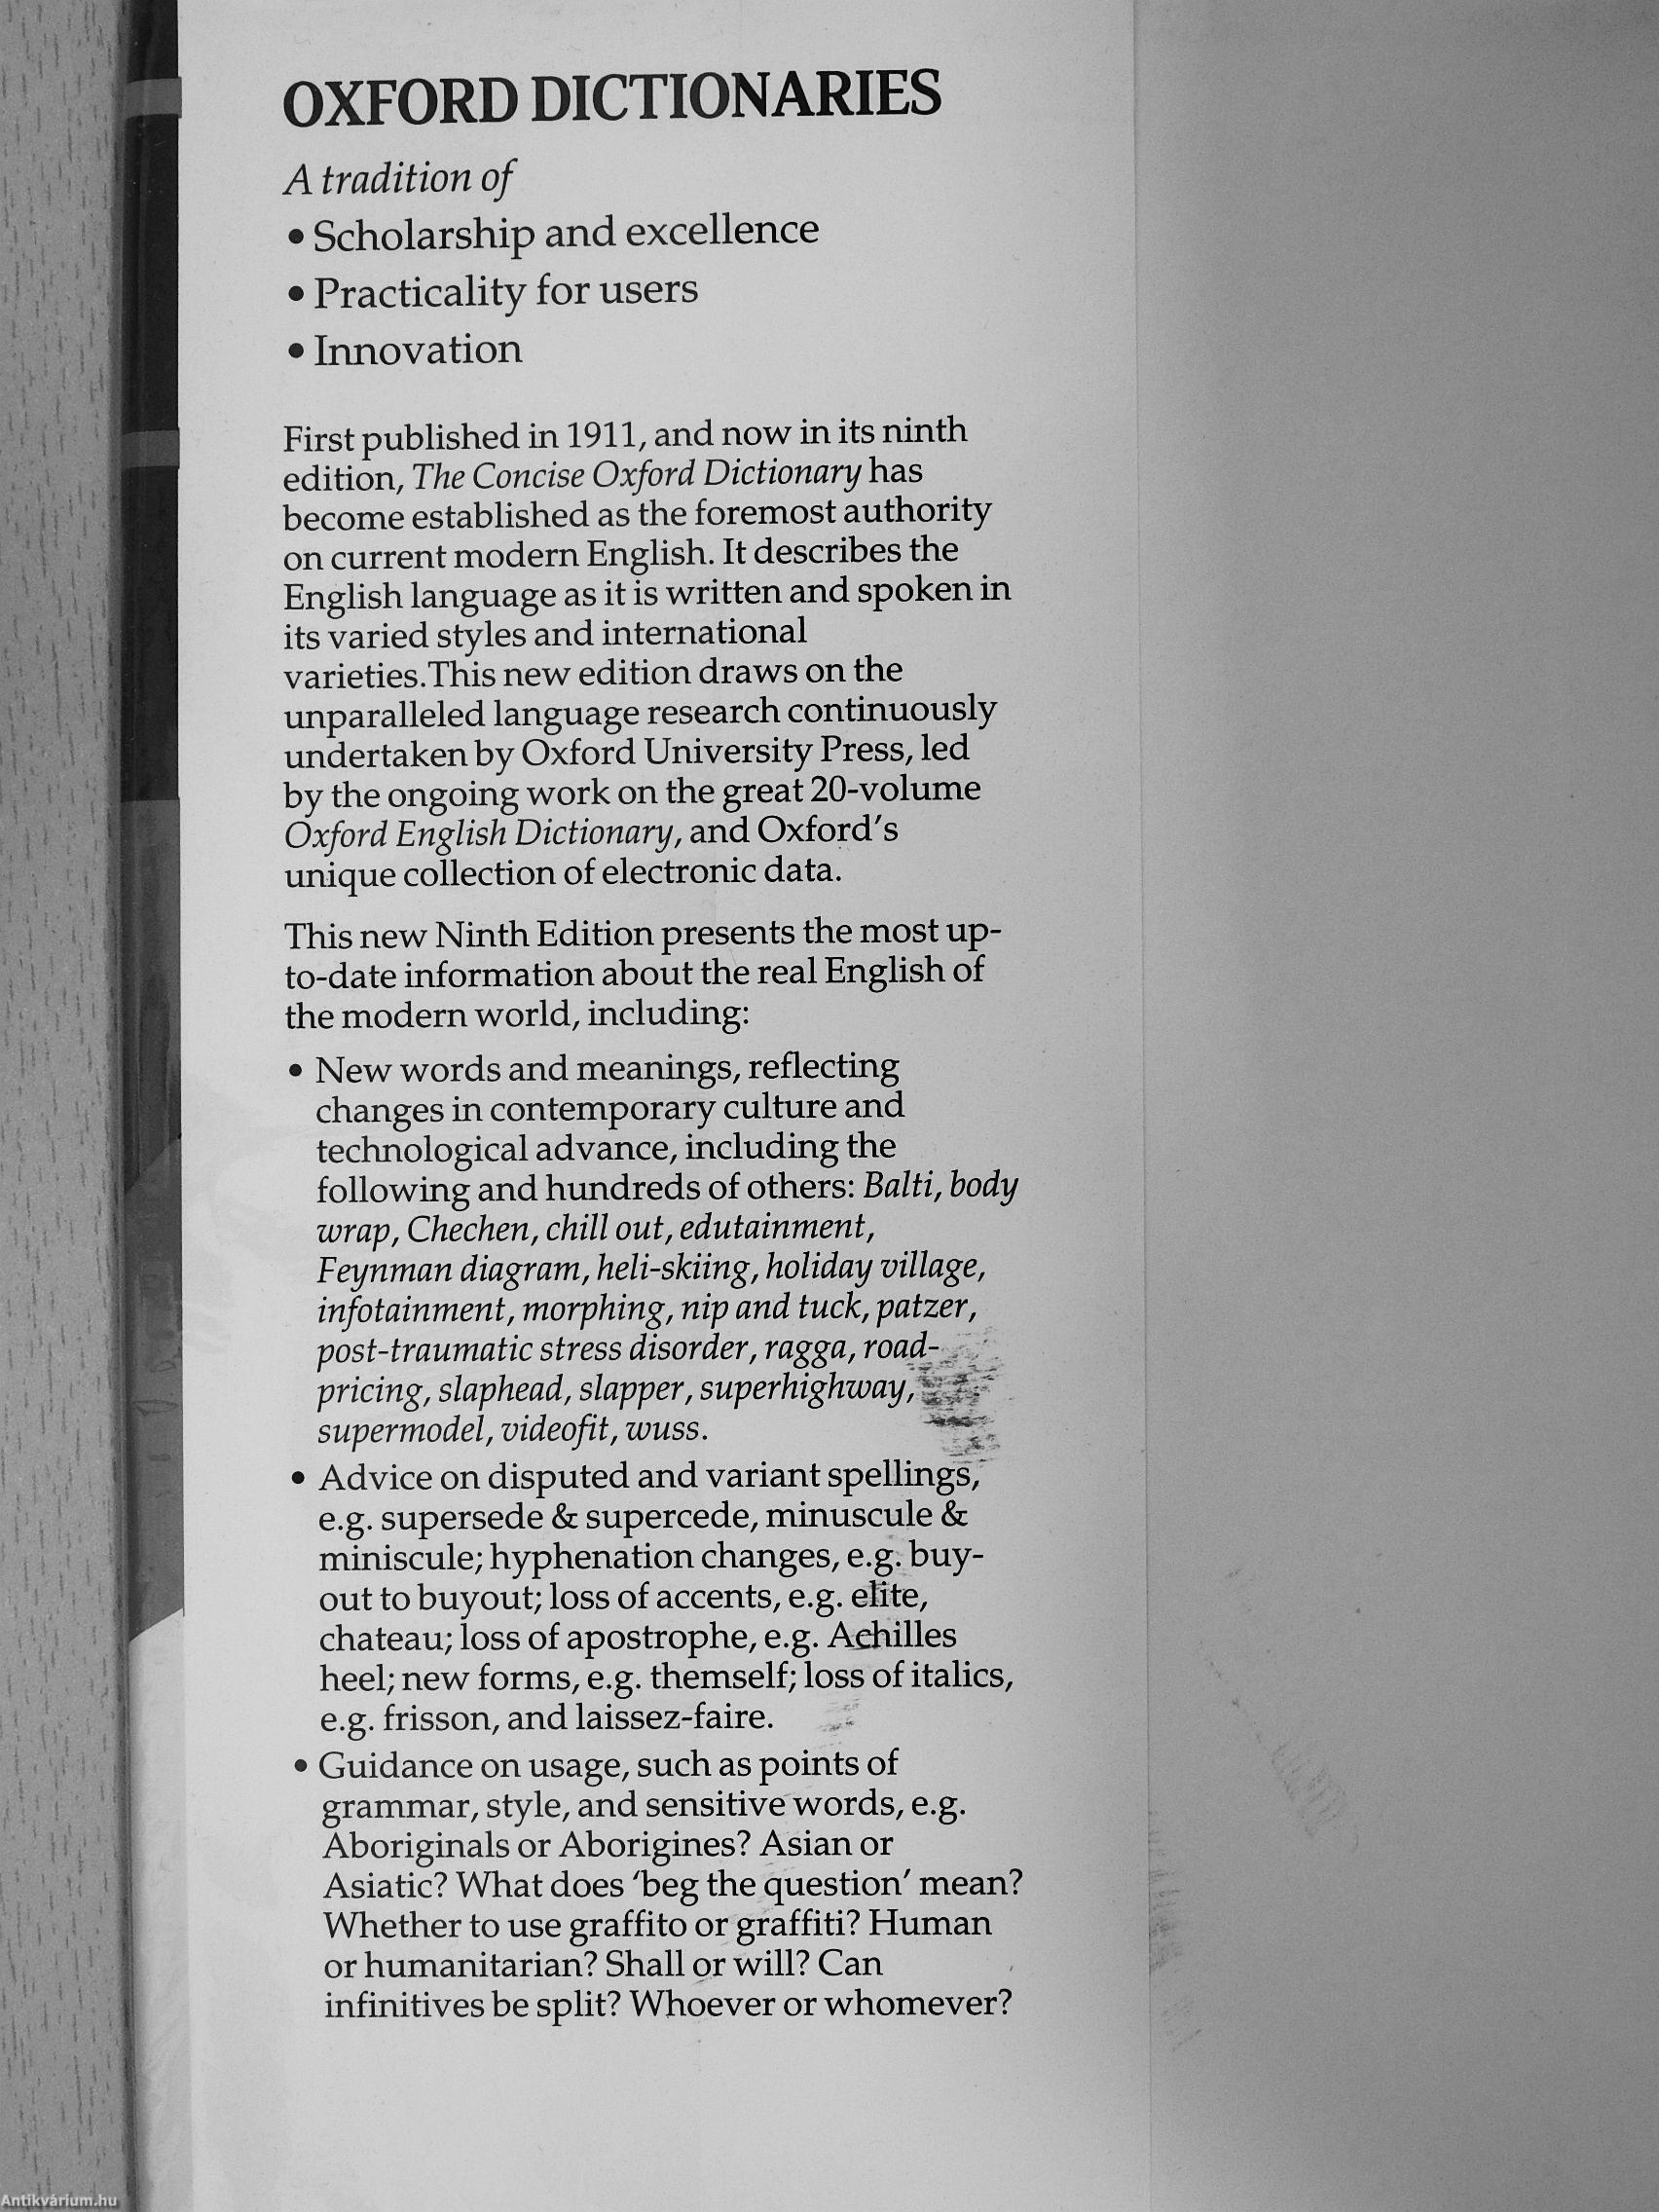 OXFORD DICTIONARIES
A tradition of
• Scholarship and excellence
• Practicality for users
• Innovation
First published in 1911, and now in its ninth
edition, The Concise Oxford Dictionary has
become established as the foremost authority
on current modern English. It describes the
English language as it is written and spoken in
its varied styles and international
varieties.This new edition draws on the
unparalleled language research continuously
undertaken by Oxford University Press, led
by the ongoing work on the great 20-volume
Oxford English Dictionary, and Oxford's
unique collection of electronic data.
This new Ninth Edition presents the most up-
to-date information about the real English of
the modern world, including:
• New words and meanings, reflecting
changes in contemporary culture and
technological advance, including the
following and hundreds of others: Balti, body
wrap, Chechen, chill out, edutainment,
Feynman diagram, heli-skiing, holiday village,
infotainment, morphing, nip and tuck, patzer,
post-traumatic stress disorder, ragga, road-
pricing, slaphead, slapper, superhighway,
supermodel, videofit, wuss.
• Advice on disputed and variant spellings,
e.g. supersede & supercede, minuscule &
miniscule; hyphenation changes, e.g. buy-
out to buyout; loss of accents, e.g. elite,
chateau; loss of apostrophe, e.g. Achilles
heel; new forms, e.g. themself; loss of italics,
e.g. frisson, and laissez-faire.
• Guidance on usage, such as points of
grammar, style, and sensitive words, e.g.
Aboriginals or Aborigines? Asian or
Asiatic? What does 'beg the question' mean?
Whether to use graffito or graffiti? Human
or humanitarian? Shall or will? Can
infinitives be split? Whoever or whomever?
Antikvárium.hu